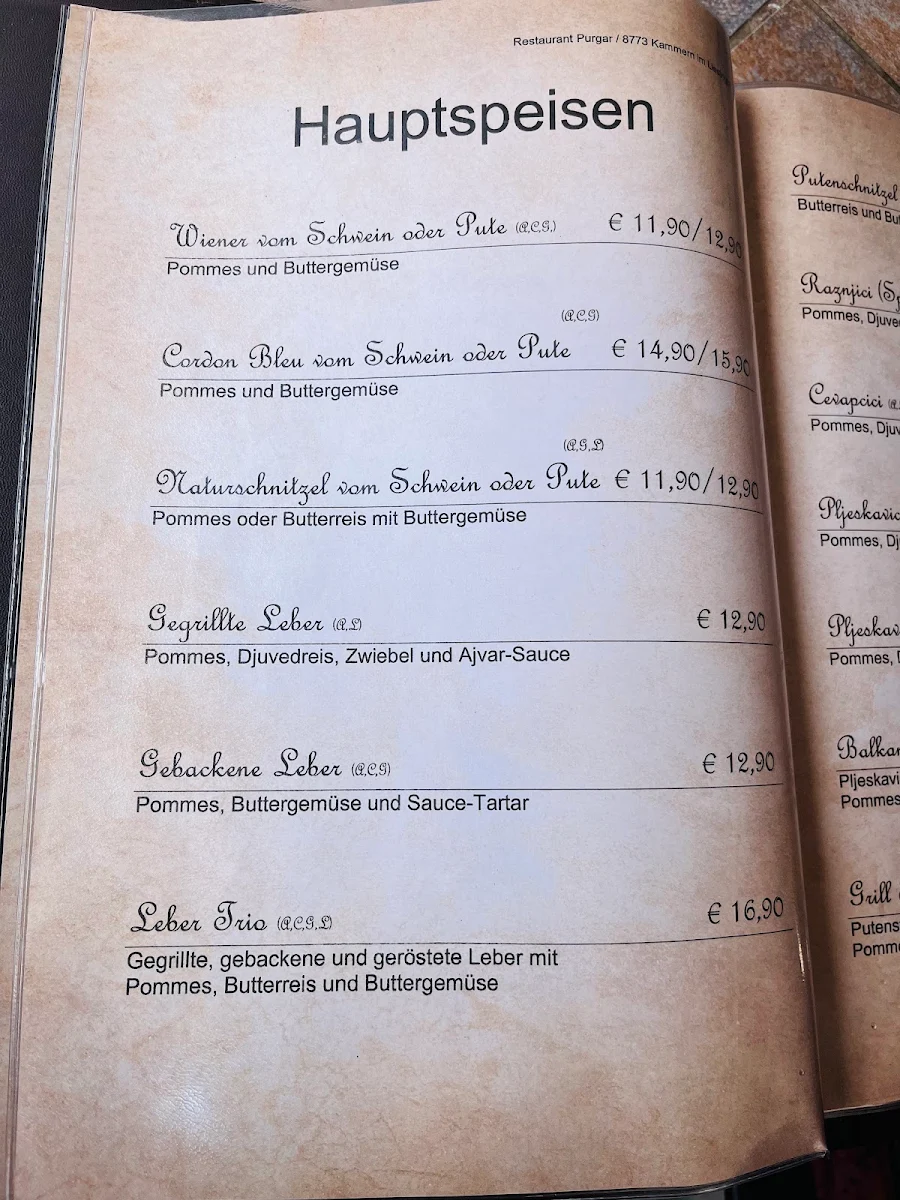 Restaurant Purgar / 8773 Kammern im
Hauptspeisen
Wiener vom Schwein oder Pute (A,C,G,) € 11,90/12,90
Pommes und Buttergemüse
(A,C,G)
Cordon Bleu vom Schwein oder Pute € 14,90/15,90
Pommes und Buttergemüse
(A,G,L)
Naturschnitzel vom Schwein oder Pute € 11,90/12,90
Pommes oder Butterreis mit Buttergemüse
Gegrillte Leber (A,L) € 12,90
Pommes, Djuvedreis, Zwiebel und Ajvar-Sauce
Gebackene Leber (A,C,G) € 12,90
Pommes, Buttergemüse und Sauce-Tartar
Leber Trio (A,C,G,L) € 16,90
Gegrillte, gebackene und geröstete Leber mit
Pommes, Butterreis und Buttergemüse
Putenschnitzel
Butterreis und Bu
Raznjici (S
Pommes, Djuve
Cevapcici
Pommes, Djuv
Pljeskavic
Pommes, Dj
Pljeskav
Pommes,
Balka
Pljeskavi
Pommes
Grill
Putens
Pomm